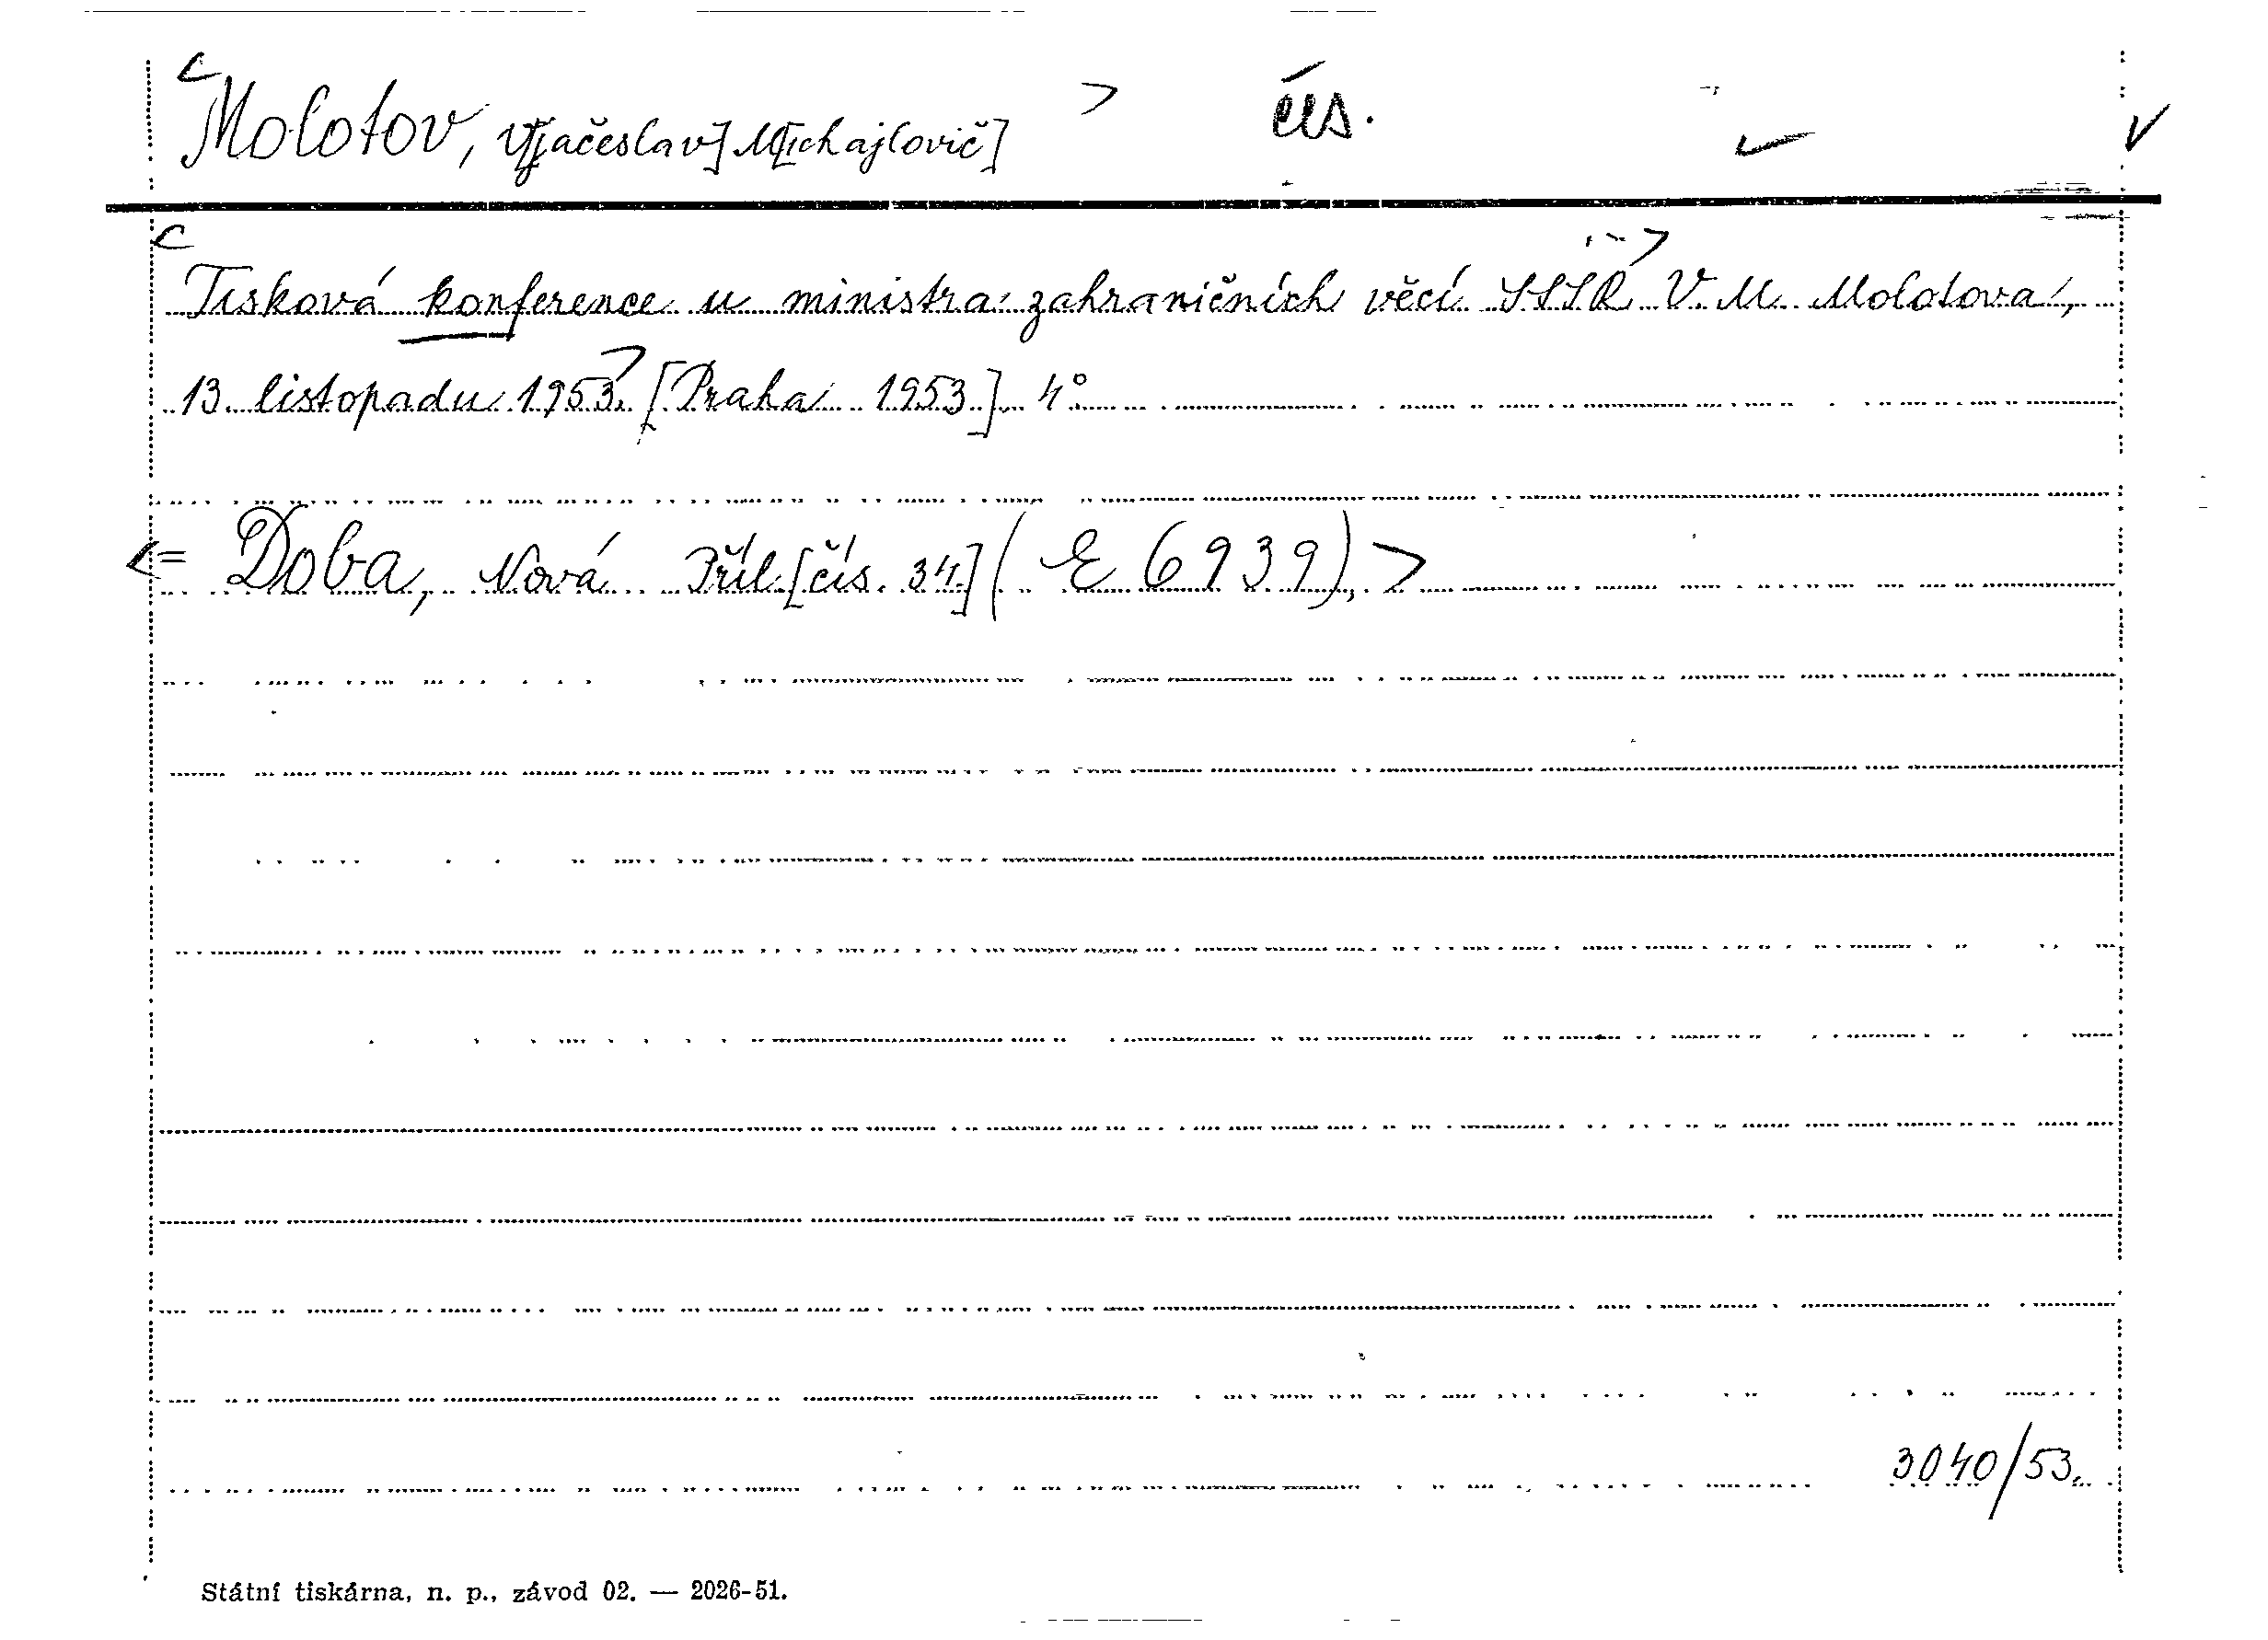 Molotov, V[jačeslav] M[ichajlovič] čís.
Tisková konference u ministra zahraničních věcí SSSR V. M. Molotova,
13. listopadu 1953. [Praha 1953]. 4°.
= Doba, Nová Příl. [čís. 34.] (E 6939).
3040/53.
Státní tiskárna, n. p., závod 02. — 2026-51.